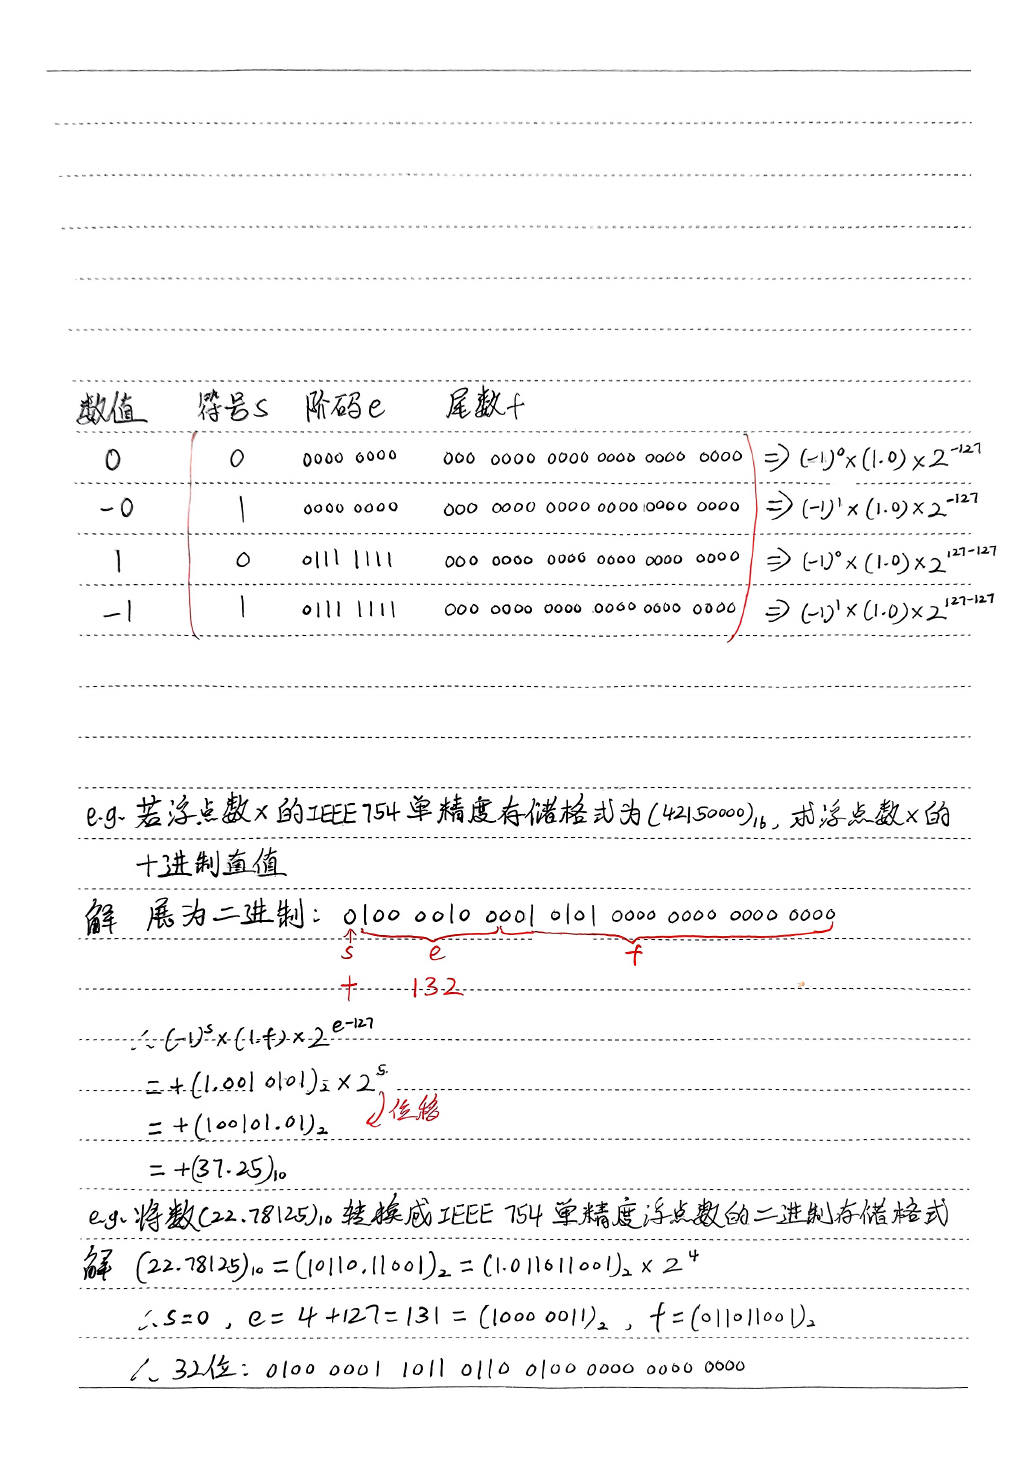 数值 符号s 阶码e 尾数f
0 0 0000 0000 000 0000 0000 0000 0000 0000 ⇒ (-1)⁰×(1.0)×2⁻¹²⁷
-0 1 0000 0000 000 0000 0000 0000 0000 0000 ⇒ (-1)¹×(1.0)×2⁻¹²⁷
1 0 0111 1111 000 0000 0000 0000 0000 0000 ⇒ (-1)⁰×(1.0)×2¹²⁷⁻¹²⁷
-1 1 0111 1111 000 0000 0000 0000 0000 0000 ⇒ (-1)¹×(1.0)×2¹²⁷⁻¹²⁷
e.g. 若浮点数x的IEEE 754单精度存储格式为(42150000)₁₆, 求浮点数x的
十进制真值
解 展为二进制: 0100 0010 0001 0101 0000 0000 0000 0000
s e f
+ 132
∴ (-1)ˢ×(1.f)×2ᵉ⁻¹²⁷
= +(1.001 0101)₂×2⁵
= +(100101.01)₂ 位移
= +(37.25)₁₀
e.g. 将数(22.78125)₁₀转换成IEEE 754单精度浮点数的二进制存储格式
解 (22.78125)₁₀ = (10110.11001)₂ = (1.011011001)₂×2⁴
∴ s=0, e= 4+127=131 = (1000 0011)₂, f=(011011001)₂
∴ 32位: 0100 0001 1011 0110 0100 0000 0000 0000